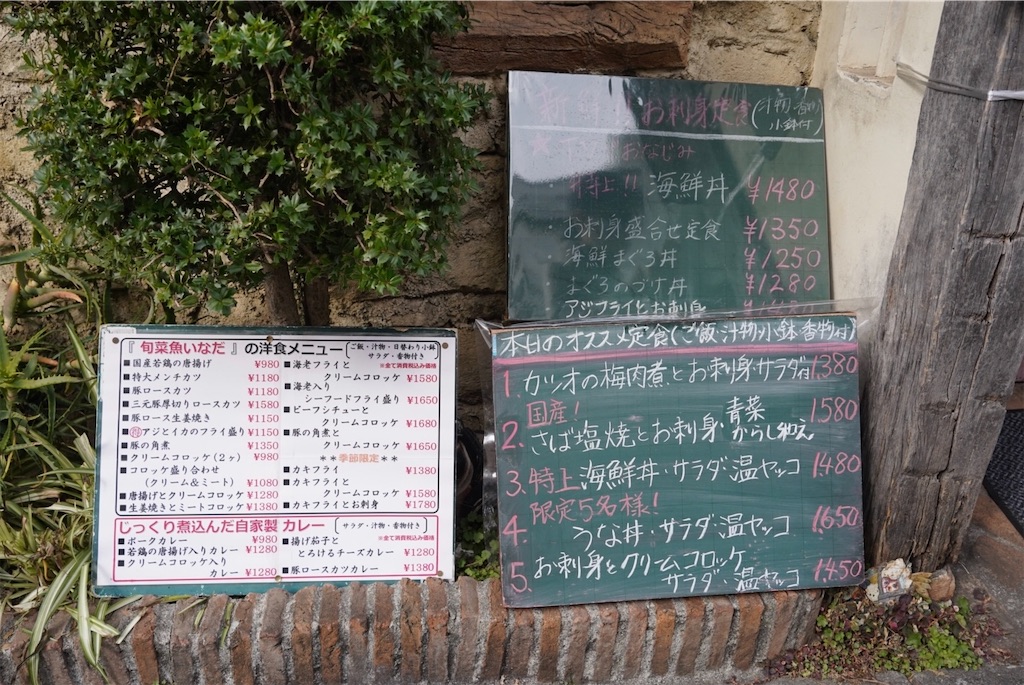 お刺身定食(汁物・香物 小鉢付)
おなじみ
・特上!! 海鮮丼 ¥1480
・お刺身盛合せ定食 ¥1350
・海鮮まぐろ丼 ¥1250
・まぐろのづけ丼 ¥1280
アジフライとお刺身
『旬菜魚いなだ』の洋食メニュー(ご飯・汁物・日替わり小鉢 サラダ・香物付き)
※全て消費税込み価格
■国産若鶏の唐揚げ ¥980
■特大メンチカツ ¥1180
■豚ロースカツ ¥1180
■三元豚厚切りロースカツ ¥1580
■豚ロース生姜焼き ¥1150
■アジとイカのフライ盛り ¥1150
■豚の角煮 ¥1350
■クリームコロッケ(2ヶ) ¥980
■コロッケ盛り合わせ
(クリーム&ミート) ¥1080
■唐揚げとクリームコロッケ ¥1280
■生姜焼きとミートコロッケ ¥1380
■海老フライと
クリームコロッケ ¥1580
■海老入り
シーフードフライ盛り ¥1650
■ビーフシチューと
クリームコロッケ ¥1680
■豚の角煮と
クリームコロッケ ¥1650
**季節限定**
■カキフライ ¥1380
■カキフライと
クリームコロッケ ¥1580
■カキフライとお刺身 ¥1780
じっくり煮込んだ自家製 カレー(サラダ・汁物・香物付き)
※全て消費税込み価格
■ポークカレー ¥980
■若鶏の唐揚げ入りカレー ¥1280
■クリームコロッケ入り
カレー ¥1280
■揚げ茄子と
とろけるチーズカレー ¥1280
■豚ロースカツカレー ¥1380
本日のオススメ定食(ご飯・汁物・小鉢・香物付)
1. カツオの梅肉煮とお刺身サラダ付 1380
国産!
2. さば塩焼とお刺身・青菜からし和え 1580
3. 特上 海鮮丼・サラダ・温ヤッコ 1480
限定5名様!
4. うな丼・サラダ・温ヤッコ 1650
5. お刺身とクリームコロッケ
サラダ・温ヤッコ 1450